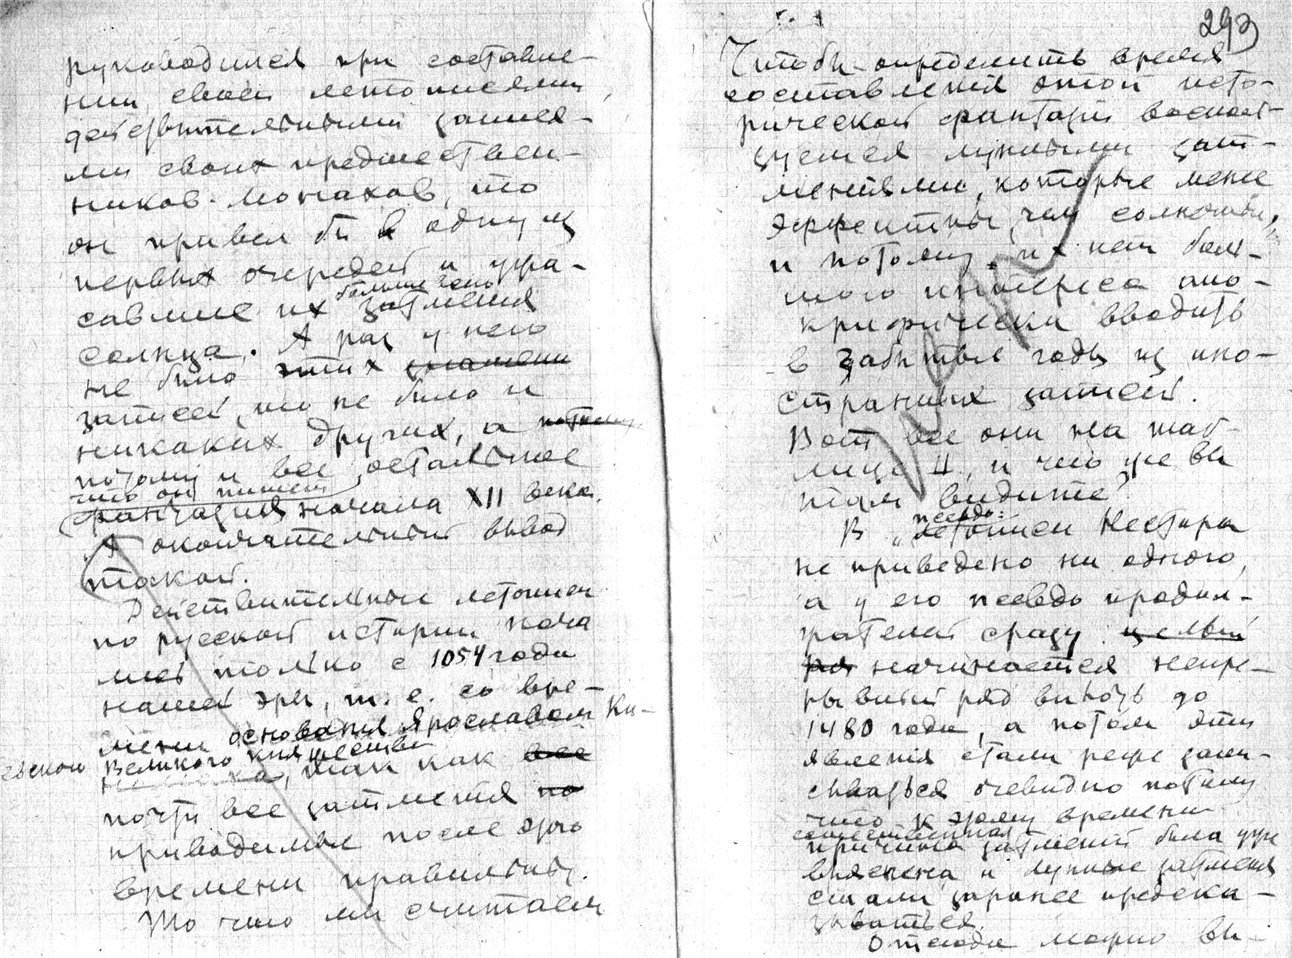 руководился при составле-
нии своей летописи
действительными запися-
ми своих предшествен-
ников-монахов, то
он привел бы в одну из
первых очередей и ужа-
савшие их больше всего затмения
солнца. А раз у него
не было этих
записей, то не было и
никаких других, а
потому и все остальное
что он пишет
фантазия начала XII века.
А окончательный вывод
такой.
Действительные летописи
по русской истории нача
лись только с 1054 года
нашей эры, т. е. со вре-
мени основания Ярославом Ки-
евского Великого княжества
, так как все
почти все затмения по
приводимые после этого
времени правильны.
То что мы считаем
293
Чтобы определить время
составления этой исто-
рической фантазии воспользу-
емся лунными зат-
мениями, которые менее
эффектны, чем солнечные,
и потому их нет боль-
шого интереса апо-
крифически вводить
в забытые годы из ино-
странных записей.
Вот все они на таб-
лице II, и что же вы
там видите?
В псевдо-летописи Нестора
не приведено ни одного,
а у его псевдо продол-
жателей сразу целый
ряд начинается непре-
рывный ряд вплоть до
1480 года, а потом эти
явления стали реже запи-
сываться очевидно потому
что к этому времени
естественная
причина затмений была уже
выяснена и лунные затмения
стали заранее предска-
зываться.
Отсюда можно вы-